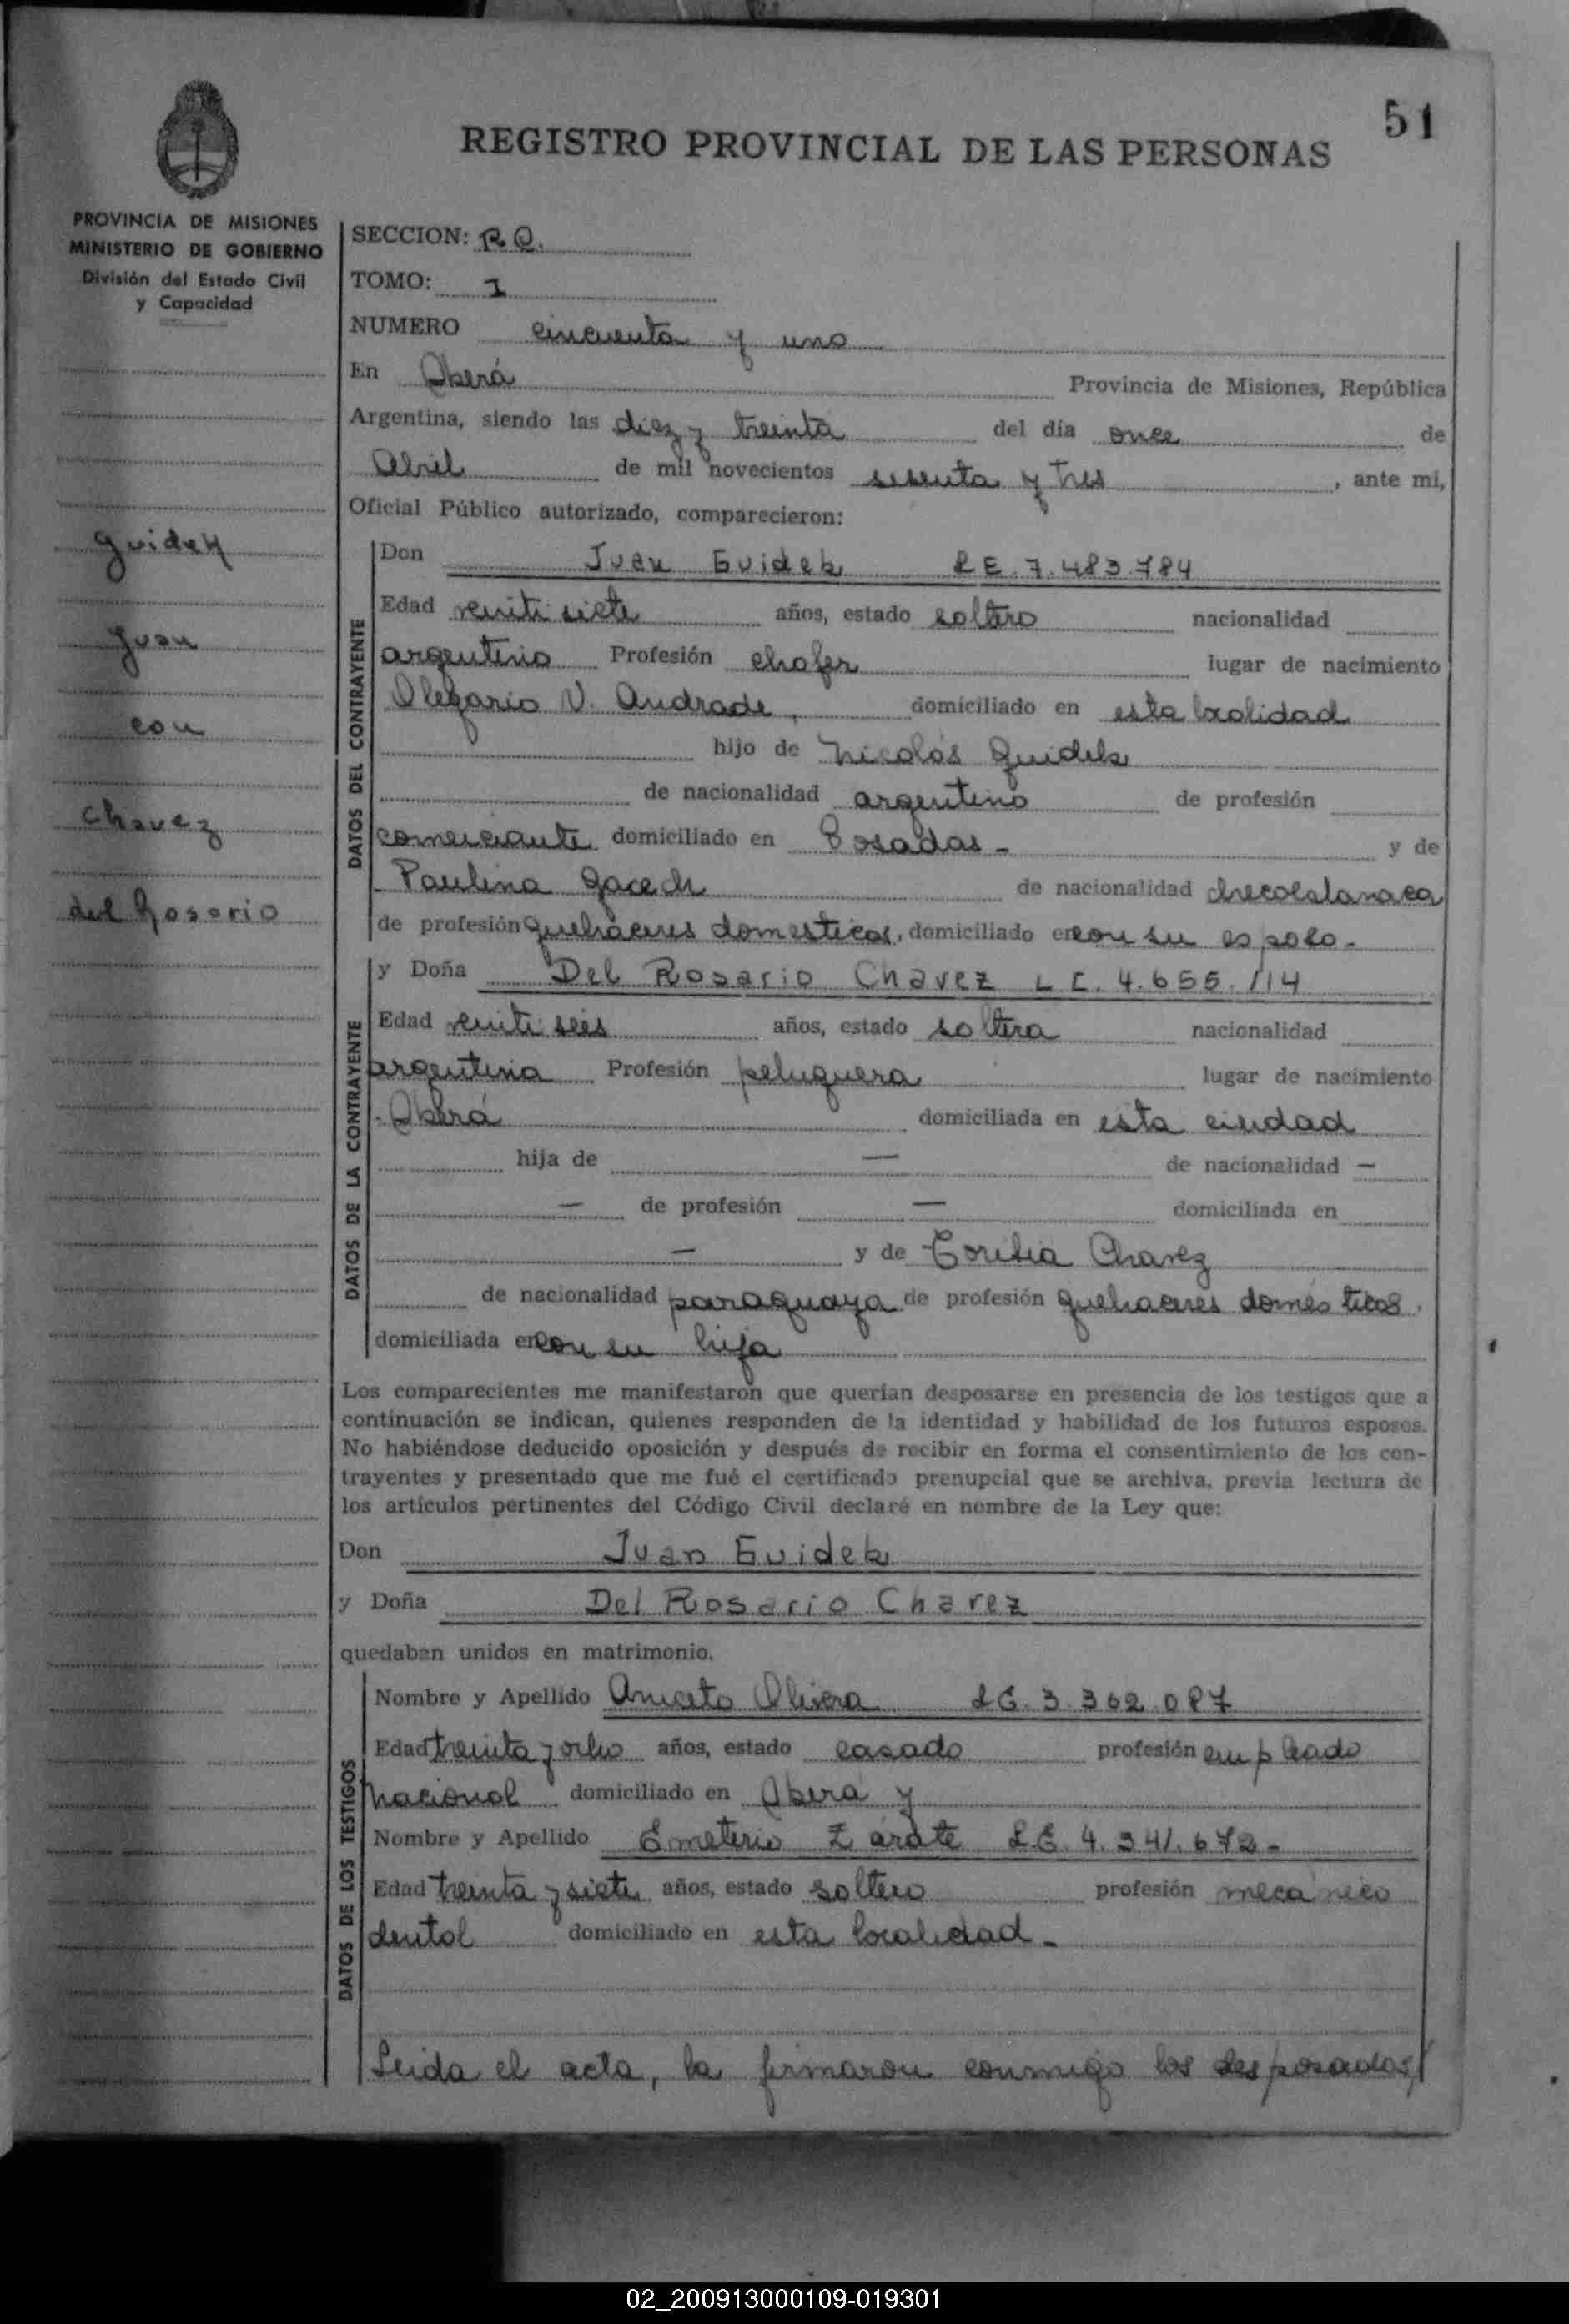 51
REGISTRO PROVINCIAL DE LAS PERSONAS
PROVINCIA DE MISIONES
MINISTERIO DE GOBIERNO
División del Estado Civil
y Capacidad
Guidek
Juan
con
Chavez
del Rosario
SECCION: R.C.
TOMO: 1
NUMERO cincuenta y uno
En Oberá Provincia de Misiones, República
Argentina, siendo las diez y treinta del día once de
Abril de mil novecientos sesenta y tres, ante mi,
Oficial Público autorizado, comparecieron:
DATOS DEL CONTRAYENTE
Don Juan Guidek L E. 7.483.784
Edad veinti siete años, estado soltero nacionalidad
argentino Profesión chofer lugar de nacimiento
Olegario V. Andrade, domiciliado en esta localidad
hijo de Nicolás Guidek
de nacionalidad argentino de profesión
comerciante domiciliado en Posadas - y de
Paulina de nacionalidad
de profesión quehaceres domesticos, domiciliado en con su esposo.
DATOS DE LA CONTRAYENTE
y Doña Del Rosario Chavez L C. 4.655.114
Edad veinti seis años, estado soltera nacionalidad
argentina Profesión peluquera lugar de nacimiento
Oberá domiciliada en esta ciudad
hija de — de nacionalidad —
— de profesión — domiciliada en
— y de Chavez
de nacionalidad paraguaya de profesión quehaceres domésticos.
domiciliada en con su hija
Los comparecientes me manifestaron que querían desposarse en presencia de los testigos que a
continuación se indican, quienes responden de la identidad y habilidad de los futuros esposos.
No habiéndose deducido oposición y después de recibir en forma el consentimiento de los con-
trayentes y presentado que me fué el certificado prenupcial que se archiva, previa lectura de
los artículos pertinentes del Código Civil declaré en nombre de la Ley que:
Don Juan Guidek
y Doña Del Rosario Chavez
quedaban unidos en matrimonio.
DATOS DE LOS TESTIGOS
Nombre y Apellido Aniceto Olivera L E. 3.362.087
Edad treinta y ocho años, estado casado profesión empleado
nacional domiciliado en Oberá y
Nombre y Apellido Emeterio Zarate L E. 4.341.672-
Edad treinta y siete años, estado soltero profesión mecánico
dental domiciliado en esta localidad -
Leida el acta, la firmaron conmigo los desposados/
02_200913000109-019301